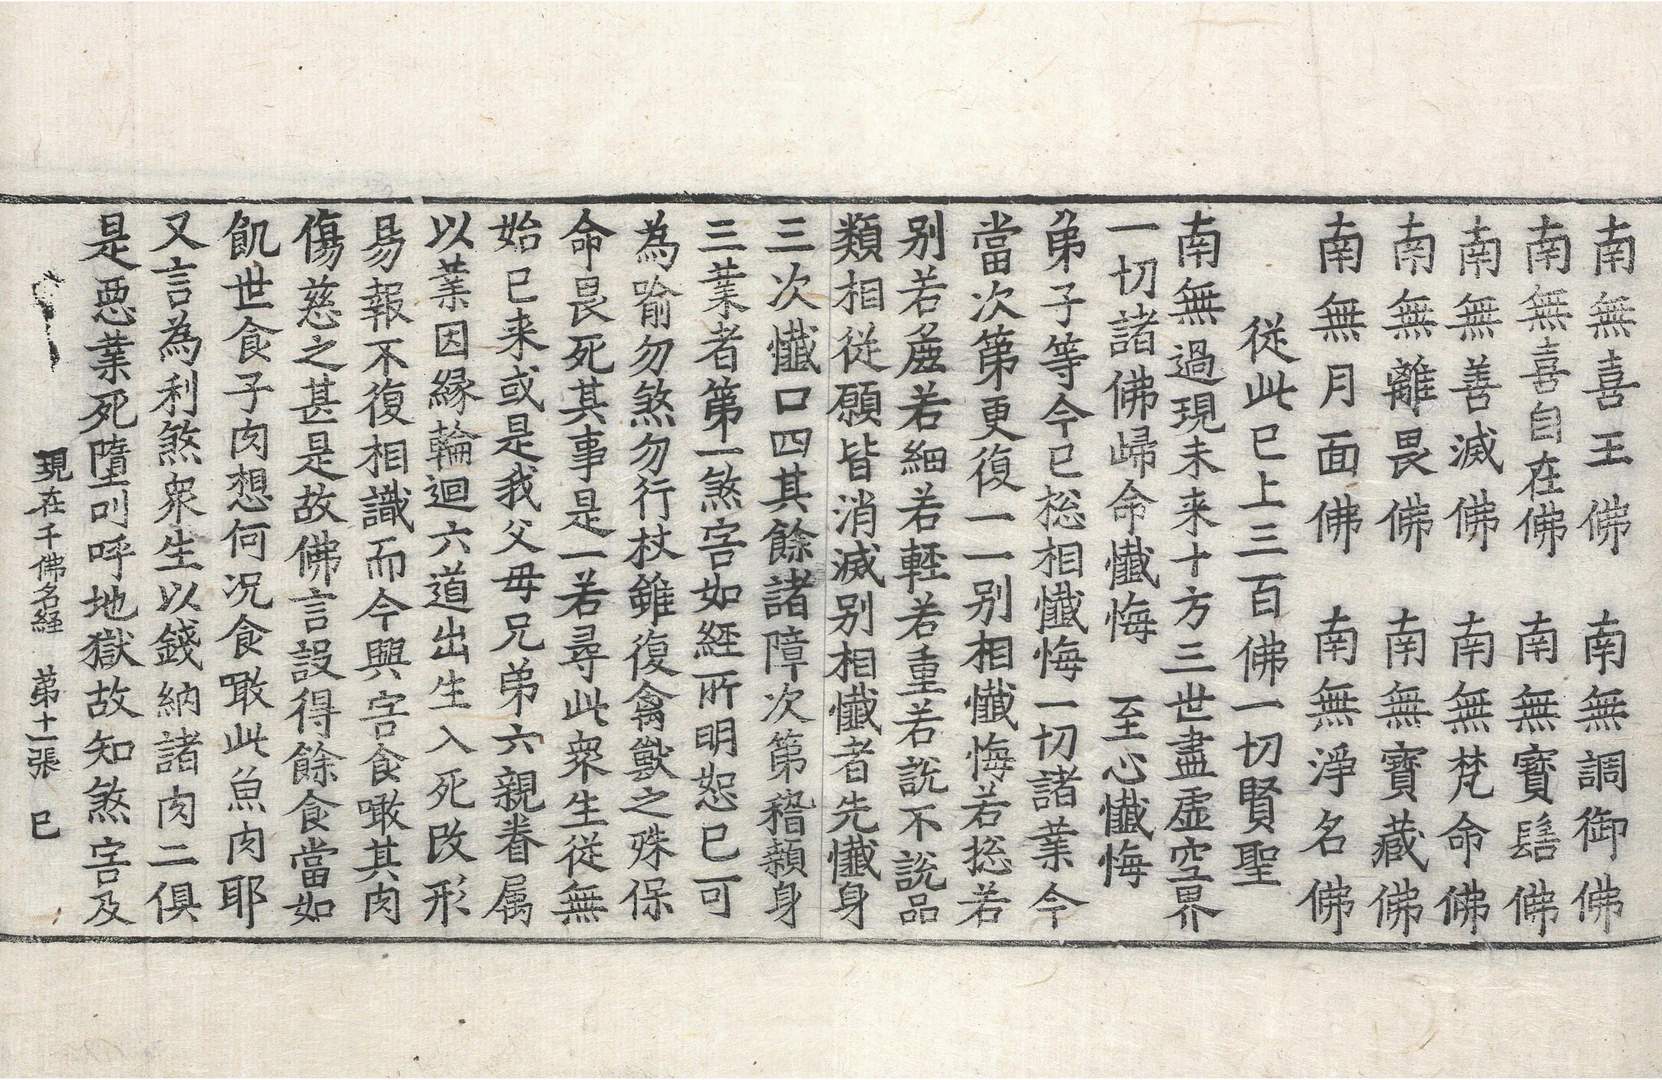 南無喜王佛　南無調御佛
南無喜自在佛　南無寶髻佛
南無善滅佛　南無梵命佛
南無離畏佛　南無寶藏佛
南無月面佛　南無淨名佛
從此已上三百佛一切賢聖
南無過現未来十方三世盡虛空界
一切諸佛歸命懺悔　至心懺悔
弟子等今已捴相懺悔一切諸業今
當次第更復一一別相懺悔若捴若
別若麁若細若輕若重若說不說品
類相從願皆消滅別相懺者先懺身
三次懺口四其餘諸障次第稽顙身
三業者第一煞害如經所明恕已可
為喻勿煞勿行杖雖復禽獸之殊保
命畏死其事是一若尋此衆生從無
始已来或是我父母兄弟六親眷属
以業因緣輪迴六道出生入死改形
易報不復相識而今興害食噉其肉
傷慈之甚是故佛言設得餘食當如
飢世食子肉想何况食噉此魚肉耶
又言為利煞衆生以錢納諸肉二俱
是惡業死墮叫呼地獄故知煞害及
現在千佛名經　第十一張　巳